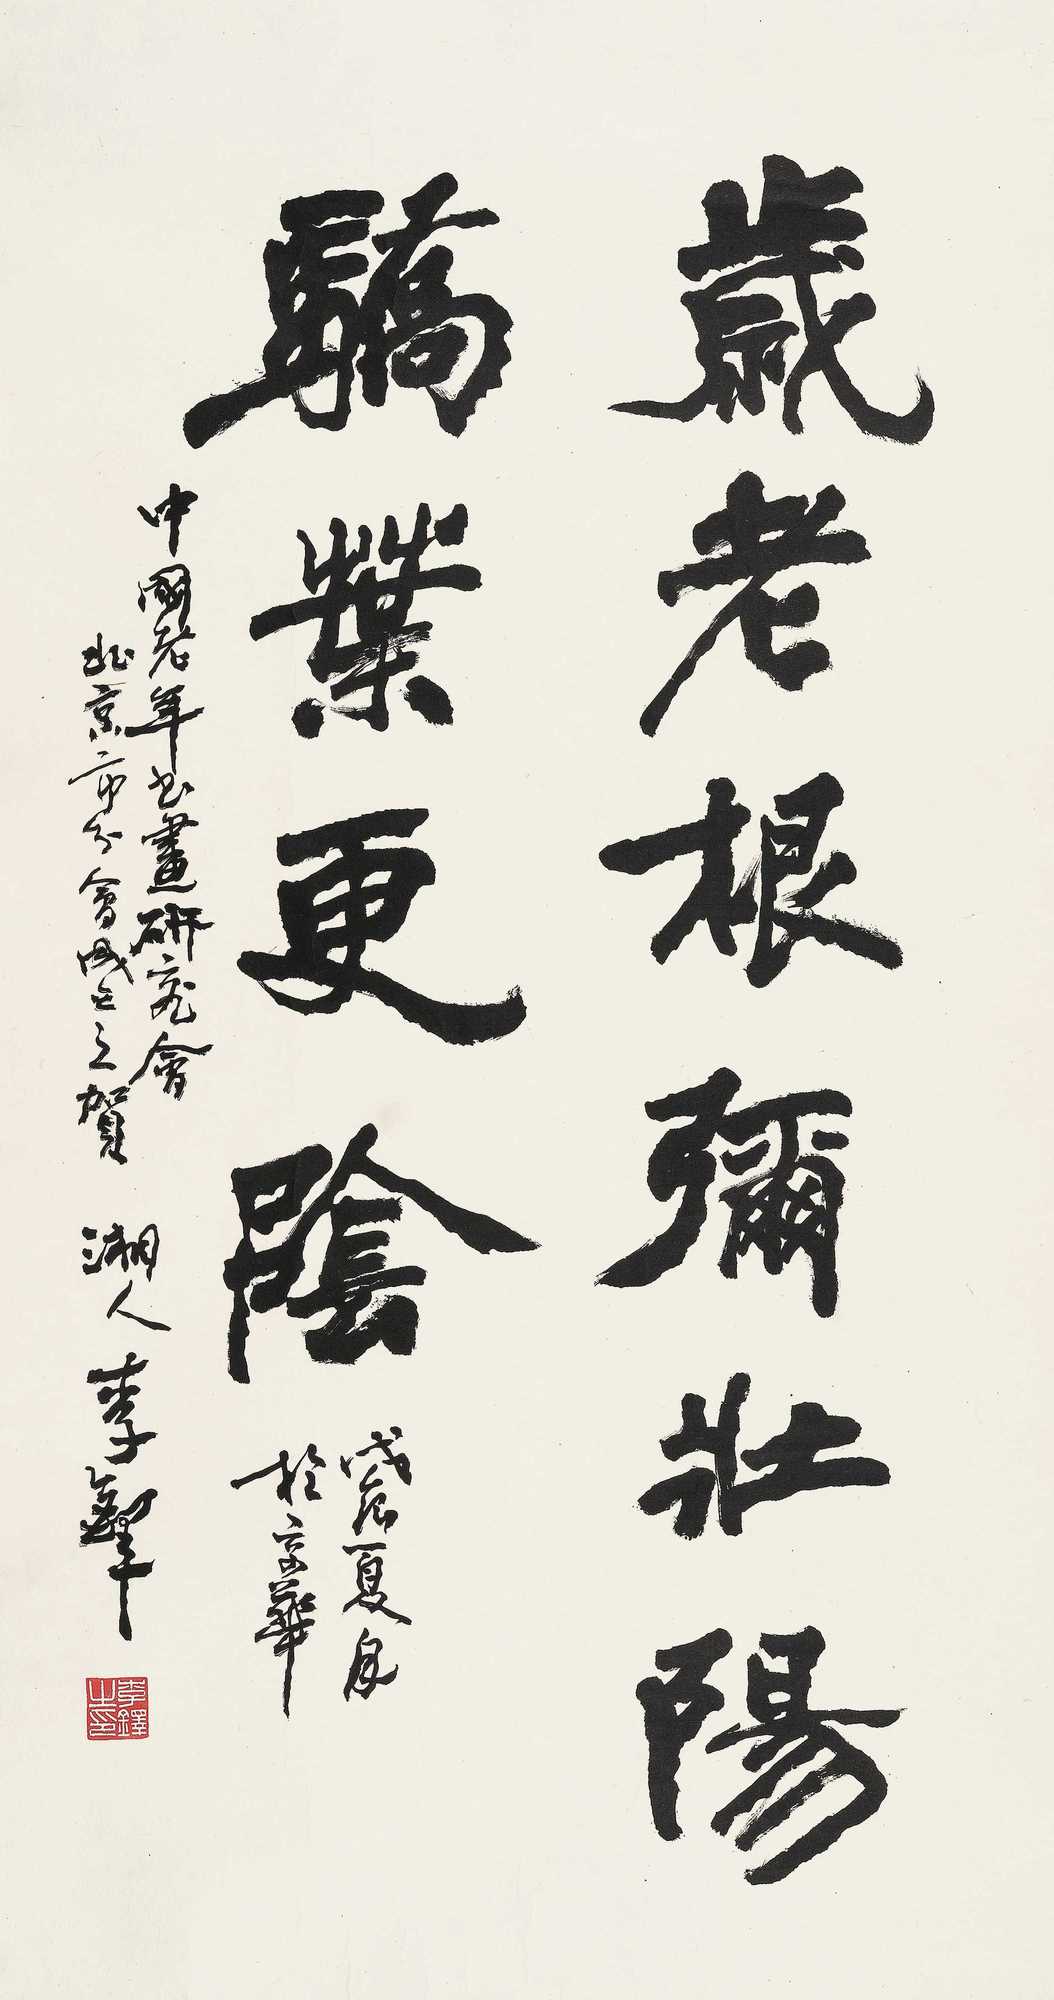 歲老根彌壯陽
驕葉更陰
戊辰夏月
於京華
中國老年書畫研究會
北京市分會成立之賀
湘人李鐸
李鐸
之印